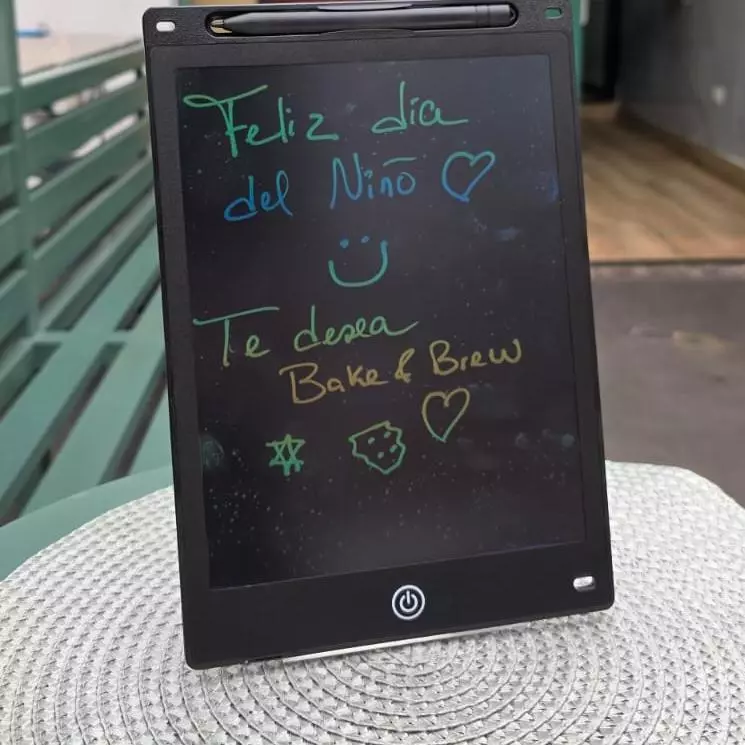 Feliz día
del Niño
Te desea
Bake & Brew